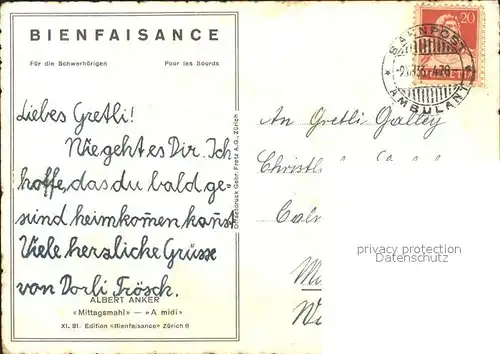 BIENFAISANCE
Für die Schwerhörigen Pour les Sourds
Liebes Gretli!
Wie geht es Dir. Ich
hoffe, das du bald ge-
sund heimkommen kanst
Viele herzliche Grüsse
von Dorli Frösch.
ALBERT ANKER
«Mittagsmahl» — «A midi»
XI. 31. Edition «Bienfaisance» Zürich 6
Offsetdruck Gebr. Fretz A.G., Zürich
20
BAHNPOST
AMBULANT
An Gretli Galley
privacy protection
Datenschutz